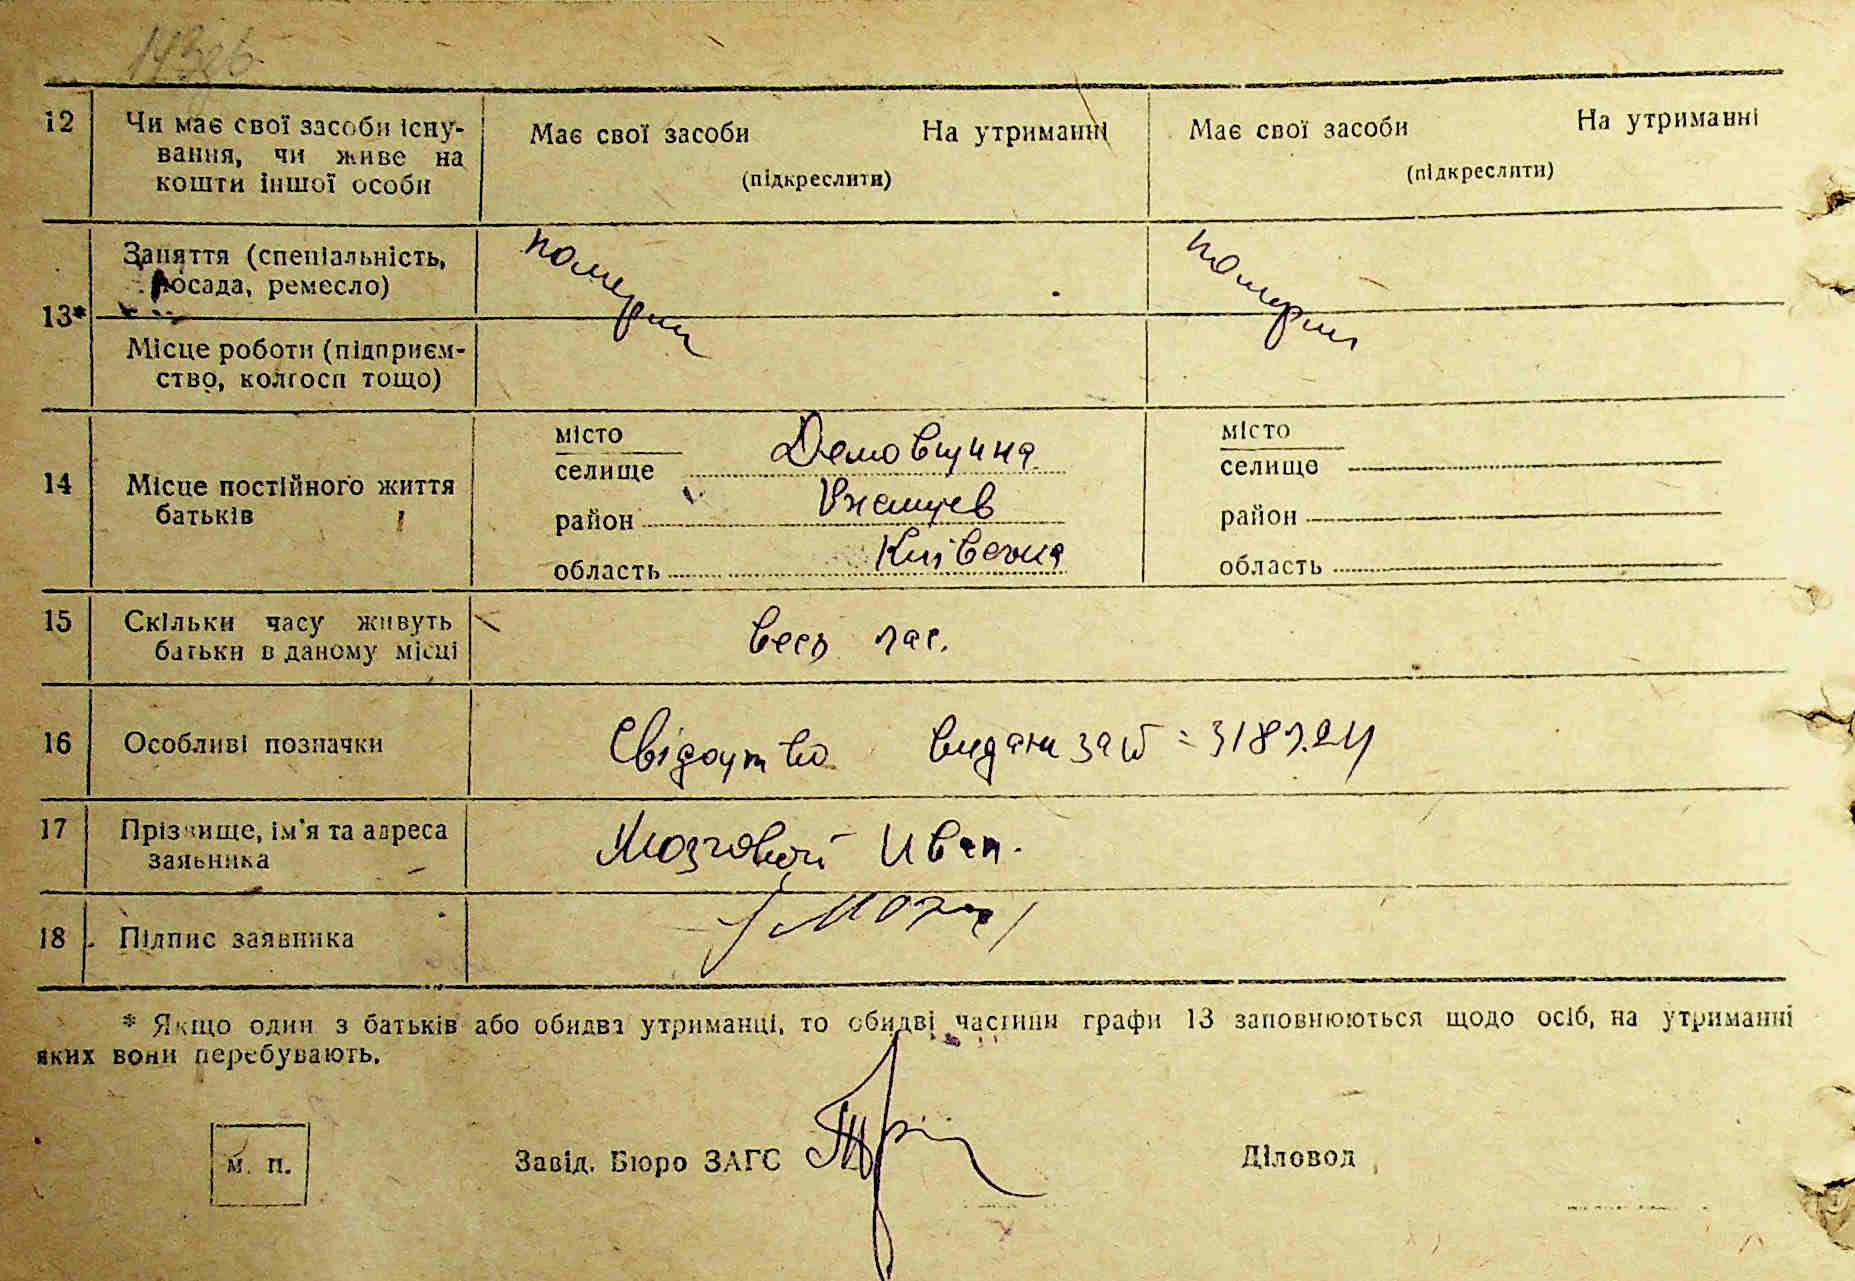 12
Чи має свої засоби існу-
вання, чи живе на
кошти іншої особи
Має свої засоби На утриманні
(підкреслити)
Має свої засоби На утриманні
(підкреслити)
13*
Заняття (спеціальність,
посада, ремесло)
Місце роботи (підприєм-
ство, колгосп тощо)
померли
померли
14
Місце постійного життя
батьків
місто
селище Демовщина
район
область Київська
місто
селище
район
область
15
Скільки часу живуть
батьки в даному місці
весь час.
16
Особливі позначки
Свідоцтво видано за №
17
Прізвище, ім'я та адреса
заявника
Мозговой Иван.
18
Підпис заявника
* Якщо один з батьків або обидва утриманці, то обидві частини графи 13 заповнюються щодо осіб, на утриманні
яких вони перебувають.
м. п.
Завід. Бюро ЗАГС
Діловод